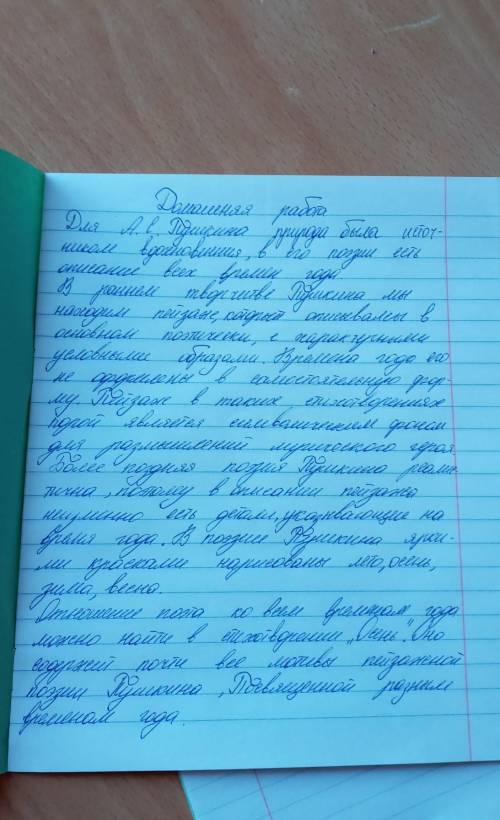 Домашняя работа
Для А. С. Пушкина природа была источ-
ником вдохновения, в его поэзии есть
описание всех времен года.
В раннем творчестве Пушкина мы
находим пейзаж, который описывался в
основном поэтически, с характерными
условными образами. Времена года его
не оформлены в самостоятельную фор-
му. Пейзаж в таких стихотворениях
порой является символическим фоном
для размышлений лирического героя.
Более поздняя поэзия Пушкина реалис-
тична, поэтому в описании пейзажа
неизменно есть детали, указывающие на
время года. В поэзие Пушкина ярки-
ми красками нарисованы лето, осень,
зима, весна.
Отношение поэта ко всем временам года
можно найти в стихотворении „Осень". Оно
содержит почти все мотивы пейзажной
поэзии Пушкина, Посвященной разным
временам года.